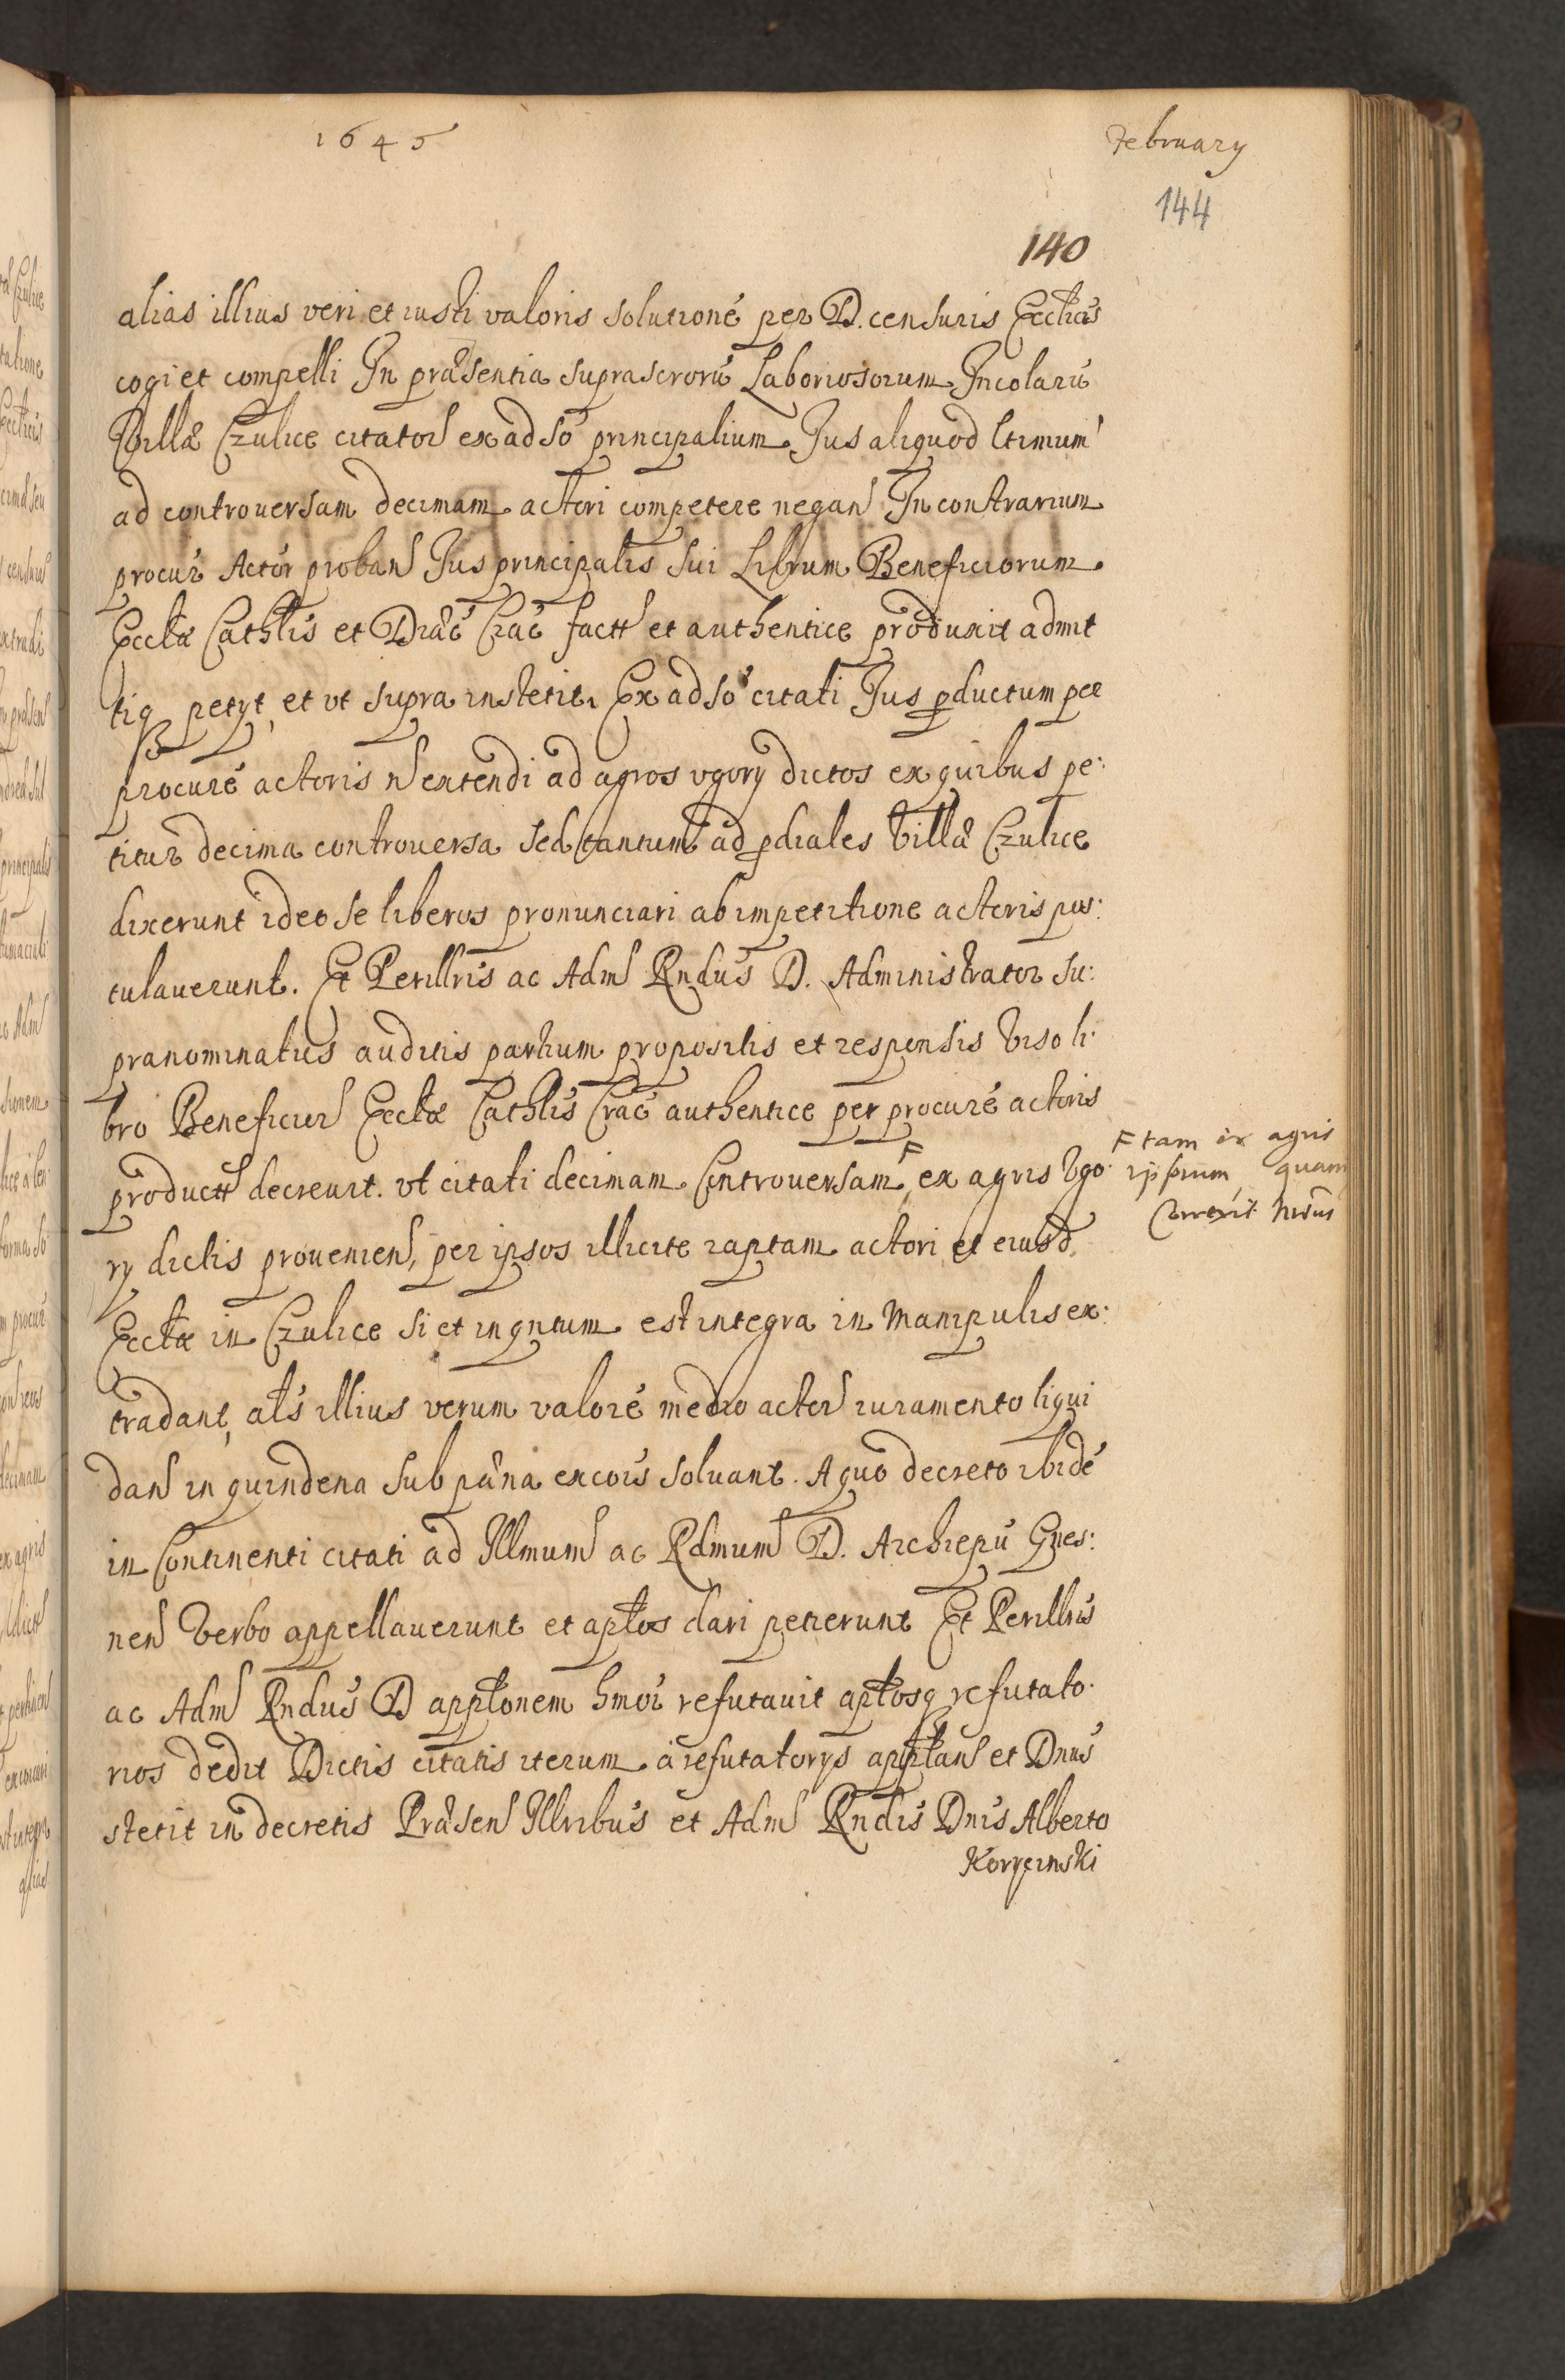 1645
February
144
140
alias illius veri et iusti valoris solutioné per D. censuris Ecclícis
cogi et compelli In præsentia suprascroru Laboriosorum Incolarú
Villæ Czulice citator ex adso principalium Jus aliquod ltimum
ad controuersam decimam actori competere negan In contrarium
procur Actor proban Jus principalis sui Librum Beneficiorum
Ecclæ Cathlis et Diæc Crac factt et authentice produxit admit
tiq petyt, et vt supra instetit. Ex adso citati Jus pductum per
procuré actoris n extendi ad agros vgory dictos ex quibus pe:
titur decima controuersa sed tantum ad pdiales Villæ Czulice
dixerunt ideo se liberos pronunciari ab impetitione actoris pos:
tulauerunt. Et Perillris ac Adm Rndus D. Administrator su:
pranominatus auditis partium propositis et responsis Viso li:
bro Beneficior Ecclæ Cathlis Crac authentice per procuré actoris
productt decreuit. vt citati decimam Controuersam F ex agris Vgo:
F tam ex agris
ipsorum quam
Correxit
ry dictis prouenien, per ipsos illicite raptam actori et eiusd
Ecclæ in Czulice si et inqntum est integra in Manipulis ex:
tradant, als illius verum valoré medio actor iuramento liqui
dan in quindena sub pæna excois soluant. A quo decreto ibidé
in Continenti citati ad Illmum ac Rdmum D. Archiepu Gnes:
nen Verbo appellauerunt et aplos dari petierunt Et Perillris
ac Adm Rndus D applonem hmoi refutauit aplosq refutato:
rios dedit Dictis citatis iterum a refutatorys applan et Dnus
stetit in decretis Præsen Illribus et Adm Rndis Dnis Alberto
Korycinski